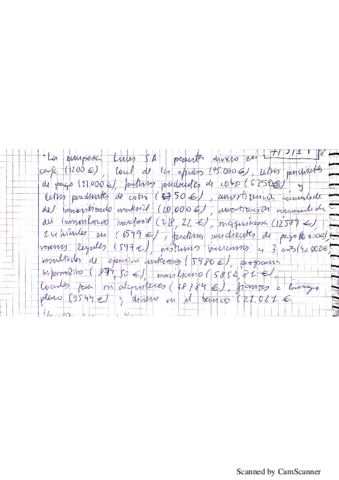 7/3/21
• La empresa Linus S.A presenta dinero en
caja (1200 €), local de las oficinas (75.000€), letras pendientes
de pago (21.000 €), facturas pendientes de cobro (6250€), y
letras pendientes de cobro ( 750 €), amortización acumulada
del inmovilizado material (10.000 €), amortización acumulada
del inmovilizado inmaterial (218,22 €), maquinaria (12509 €),
vehículos en (6599 €), facturas pendientes de pago
reservas legales (597 €), a 3 años
resultados de ejercicio anteriores (5980 €), programa
informático ( 874,50 €), mobiliario (5852,81 €),
locales para alquileres (68184 €), fianzas a largo
plazo (3544 €) y dinero en el banco (21.021 €
Scanned by CamScanner